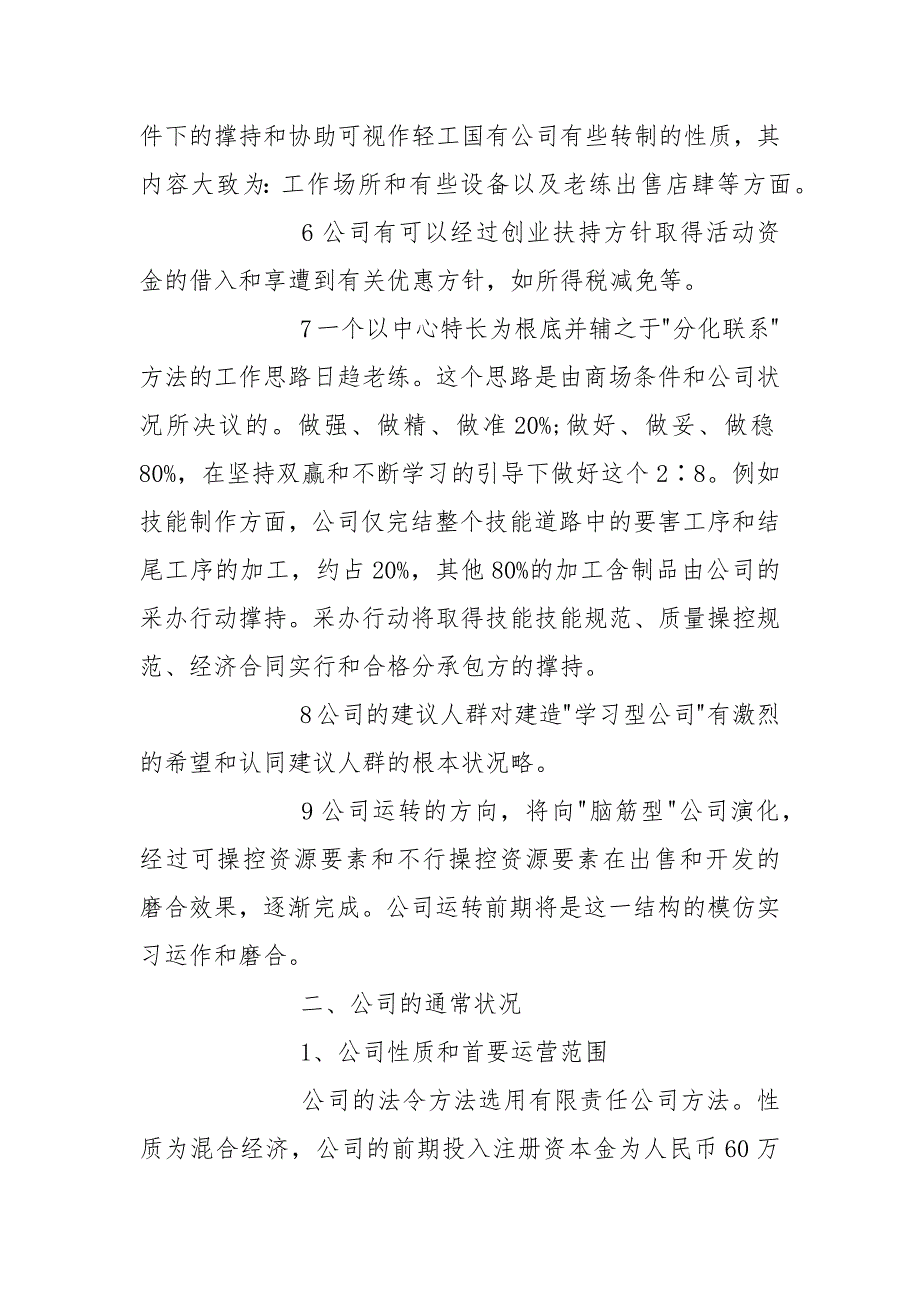 件下的撑持和协助可视作轻工国有公司有些转制的性质，其
内容大致为：工作场所和有些设备以及老练出售店肆等方面。
6 公司有可以经过创业扶持方针取得活动资
金的借入和享遭到有关优惠方针，如所得税减免等。
7一个以中心特长为根底并辅之于"分化联系"
方法的工作思路日趋老练。这个思路是由商场条件和公司状
况所决议的。做强、做精、做准 20%;做好、做妥、做稳
80%，在坚持双赢和不断学习的引导下做好这个 2∶8。例如
技能制作方面，公司仅完结整个技能道路中的要害工序和结
尾工序的加工，约占 20%，其他 80%的加工含制品由公司的
采办行动撑持。采办行动将取得技能技能规范、质量操控规
范、经济合同实行和合格分承包方的撑持。
8公司的建议人群对建造"学习型公司"有激烈
的希望和认同建议人群的根本状况略。
9 公司运转的方向，将向"脑筋型"公司演化，
经过可操控资源要素和不行操控资源要素在出售和开发的
磨合效果，逐渐完成。公司运转前期将是这一结构的模仿实
习运作和磨合。
二、公司的通常状况
1、公司性质和首要运营范围
公司的法令方法选用有限责任公司方法。性
质为混合经济，公司的前期投入注册资本金为人民币 60 万